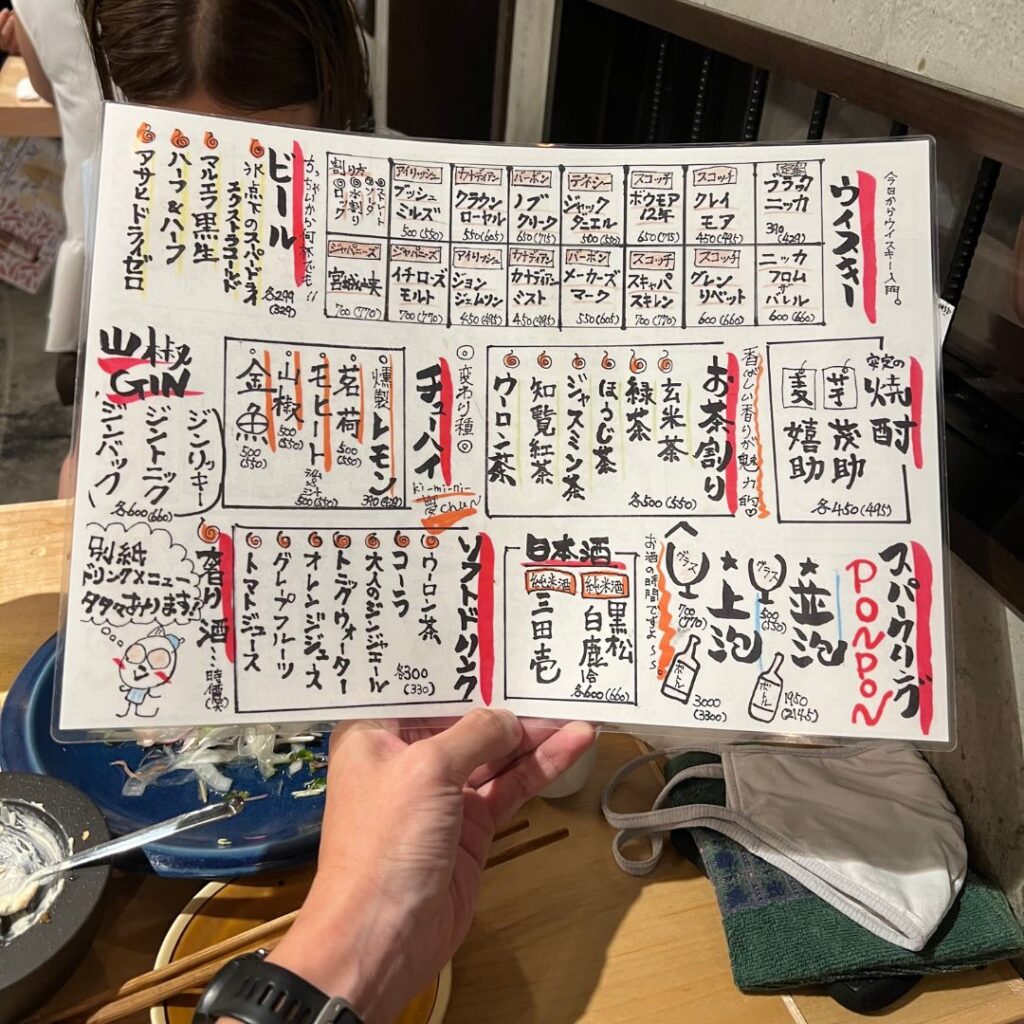 今日からウイスキー入門。
ウイスキー
定番
ブラック
ニッカ
390
(429)
スコッチ
クレイ
モア
450(495)
スコッチ
ボウモア
12年
650(715)
テネシー
ジャック
ダニエル
500(550)
バーボン
ノブ
クリーク
650(715)
カナディアン
クラウン
ローヤル
550(605)
アイリッシュ
ブッシュ
ミルズ
500(550)
割り方
ストレート
ソーダ
水割り
ロック
ニッカ
フロム
ザ
バレル
600(660)
スコッチ
グレン
リベット
600(660)
スコッチ
スキャパ
スキレン
700(770)
バーボン
メーカーズ
マーク
550(605)
カナディアン
カナディアン
ミスト
450(495)
アイリッシュ
ジョン
ジェムリン
450(495)
ジャパニーズ
イチローズ
モルト
700(770)
ジャパニーズ
宮城峡
700(770)
ビール
氷点下のスーパードライ
エクストラコールド
マルエフ黒生
ハーフ&ハーフ
アサヒドライゼロ
各299
(329)
安定の
焼酎
芋 茂助
麦 嬉助
各450(495)
香ばしい香りが魅力的
お茶割り
玄米茶
緑茶
ほうじ茶
ジャスミン茶
知覧紅茶
ウーロン茶
各500(550)
変わり種
チューハイ
ki-mi-ni-
夢chu〜
燻製レモン
390(429)
茗荷
500
(550)
モヒート
ライム&ミント
500(550)
山椒
500
(550)
金魚
500
(550)
山椒
GIN
ジンリッキー
ジントニック
ジンバック
各600(660)
スパークリング
PONPON
★並泡
グラス
500
(550)
ボトル
1950
(2145)
★上泡
グラス
700
(770)
ボトル
3000
(3300)
お酒の時間ですよ〜
日本酒
純米酒
黒松
白鹿 冷
純米酒
三田壱
各600(660)
ソフトドリンク
ウーロン茶
コーラ
大人のジンジャエール
トニックウォーター
オレンジジュース
グレープフルーツ
トマトジュース
各300
(330)
奢り酒…時価(笑)
別紙
ドリンクメニュー
タタマあります!?